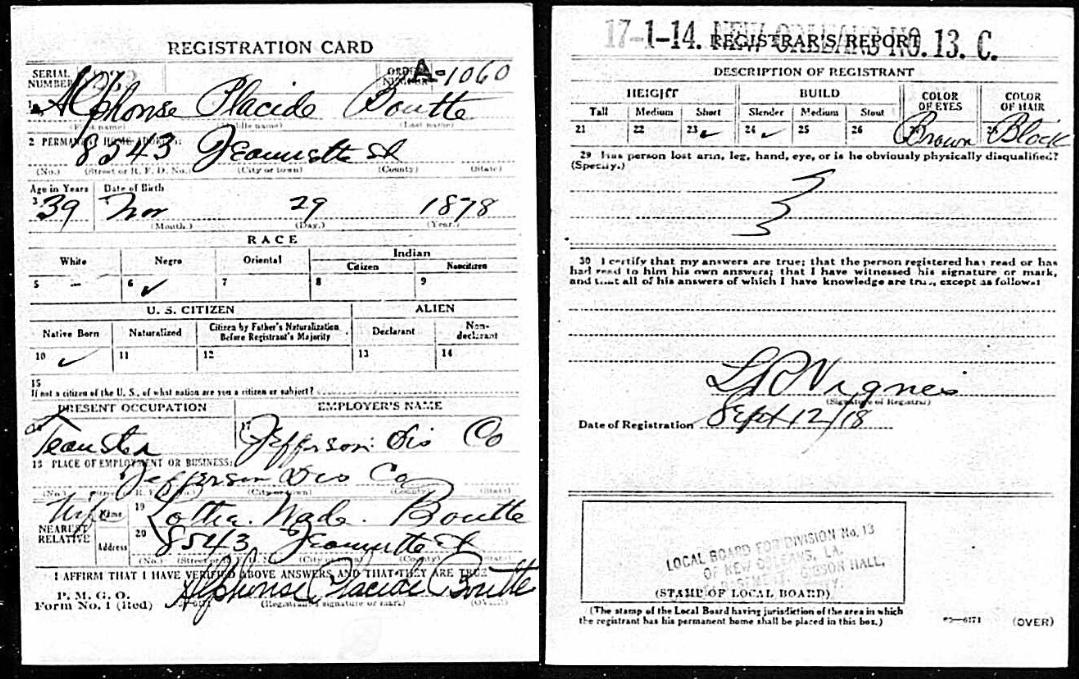 REGISTRATION CARD
SERIAL NUMBER
ORDER NUMBER A-1060
1 Alphonse Placide Boutte
(First name) (Middle name) (Last name)
2 PERMANENT HOME ADDRESS:
8543 Jeannette St
(No.) (Street or R. F. D. No.) (City or town) (County) (State)
Age in Years Date of Birth
3 39 Nov 29 1878
(Month.) (Day.) (Year.)
RACE
White Negro Oriental Indian
Citizen Noncitizen
5 6 ✓ 7 8 9
U. S. CITIZEN ALIEN
Native Born Naturalized Citizen by Father's Naturalization Before Registrant's Majority Declarant Non-declarant
10 ✓ 11 12 13 14
15
If not a citizen of the U. S., of what nation are you a citizen or subject?
PRESENT OCCUPATION EMPLOYER'S NAME
16 Teamster 17 Jefferson Dis Co
18 PLACE OF EMPLOYMENT OR BUSINESS:
Jefferson Dis Co
(No.) (City or town) (County) (State)
Wife Name 19 Wade Boutte
NEAREST RELATIVE
Address 20 8543 Jeannette St
(No.) (Street or R. F. D. No.) (City or town) (County) (State)
I AFFIRM THAT I HAVE VERIFIED ABOVE ANSWERS AND THAT THEY ARE TRUE
P. M. G. O.
Form No. 1 (Red) Alphonse Placide Boutte
(Registrant's signature or mark) (OVER)
17-1-14. NEW ORLEANS NO. 13. C.
REGISTRAR'S REPORT
DESCRIPTION OF REGISTRANT
HEIGHT BUILD COLOR OF EYES COLOR OF HAIR
Tall Medium Short Slender Medium Stout
21 22 23 ✓ 24 ✓ 25 26 27 Brown 28 Black
29 Has person lost arm, leg, hand, eye, or is he obviously physically disqualified?
(Specify.)
30 I certify that my answers are true; that the person registered has read or has
had read to him his own answers; that I have witnessed his signature or mark,
and that all of his answers of which I have knowledge are true, except as follows:
L R Vignes
(Signature of Registrar)
Date of Registration Sept 12/18
LOCAL BOARD FOR DIVISION No. 13
OF NEW ORLEANS, LA.
BASEMENT, GIBSON HALL,
CITY.
(STAMP OF LOCAL BOARD)
(The stamp of the Local Board having jurisdiction of the area in which
the registrant has his permanent home shall be placed in this box.)
(OVER)